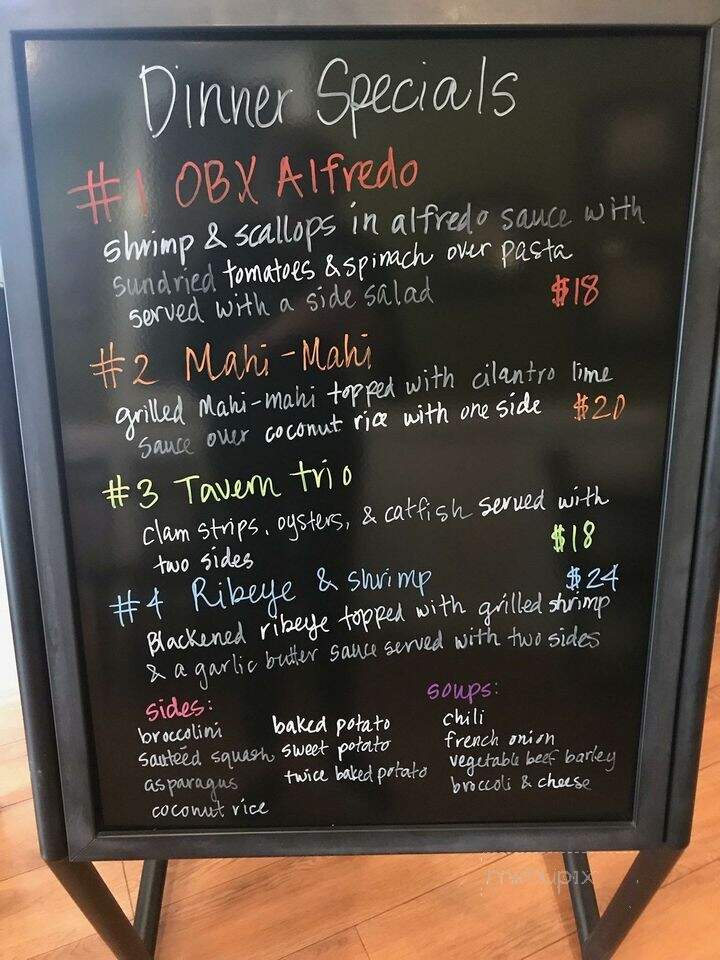 Dinner Specials
#1 OBX Alfredo
shrimp & scallops in alfredo sauce with
sundried tomatoes & spinach over pasta
served with a side salad $18
#2 Mahi-Mahi
grilled Mahi-mahi topped with cilantro lime
sauce over coconut rice with one side $20
#3 Tavern trio
clam strips, oysters, & catfish served with
two sides $18
#4 Ribeye & shrimp $24
Blackened ribeye topped with grilled shrimp
& a garlic butter sauce served with two sides
sides:
broccolini
sautéed squash
asparagus
coconut rice
baked potato
sweet potato
twice baked potato
soups:
chili
french onion
vegetable beef barley
broccoli & cheese